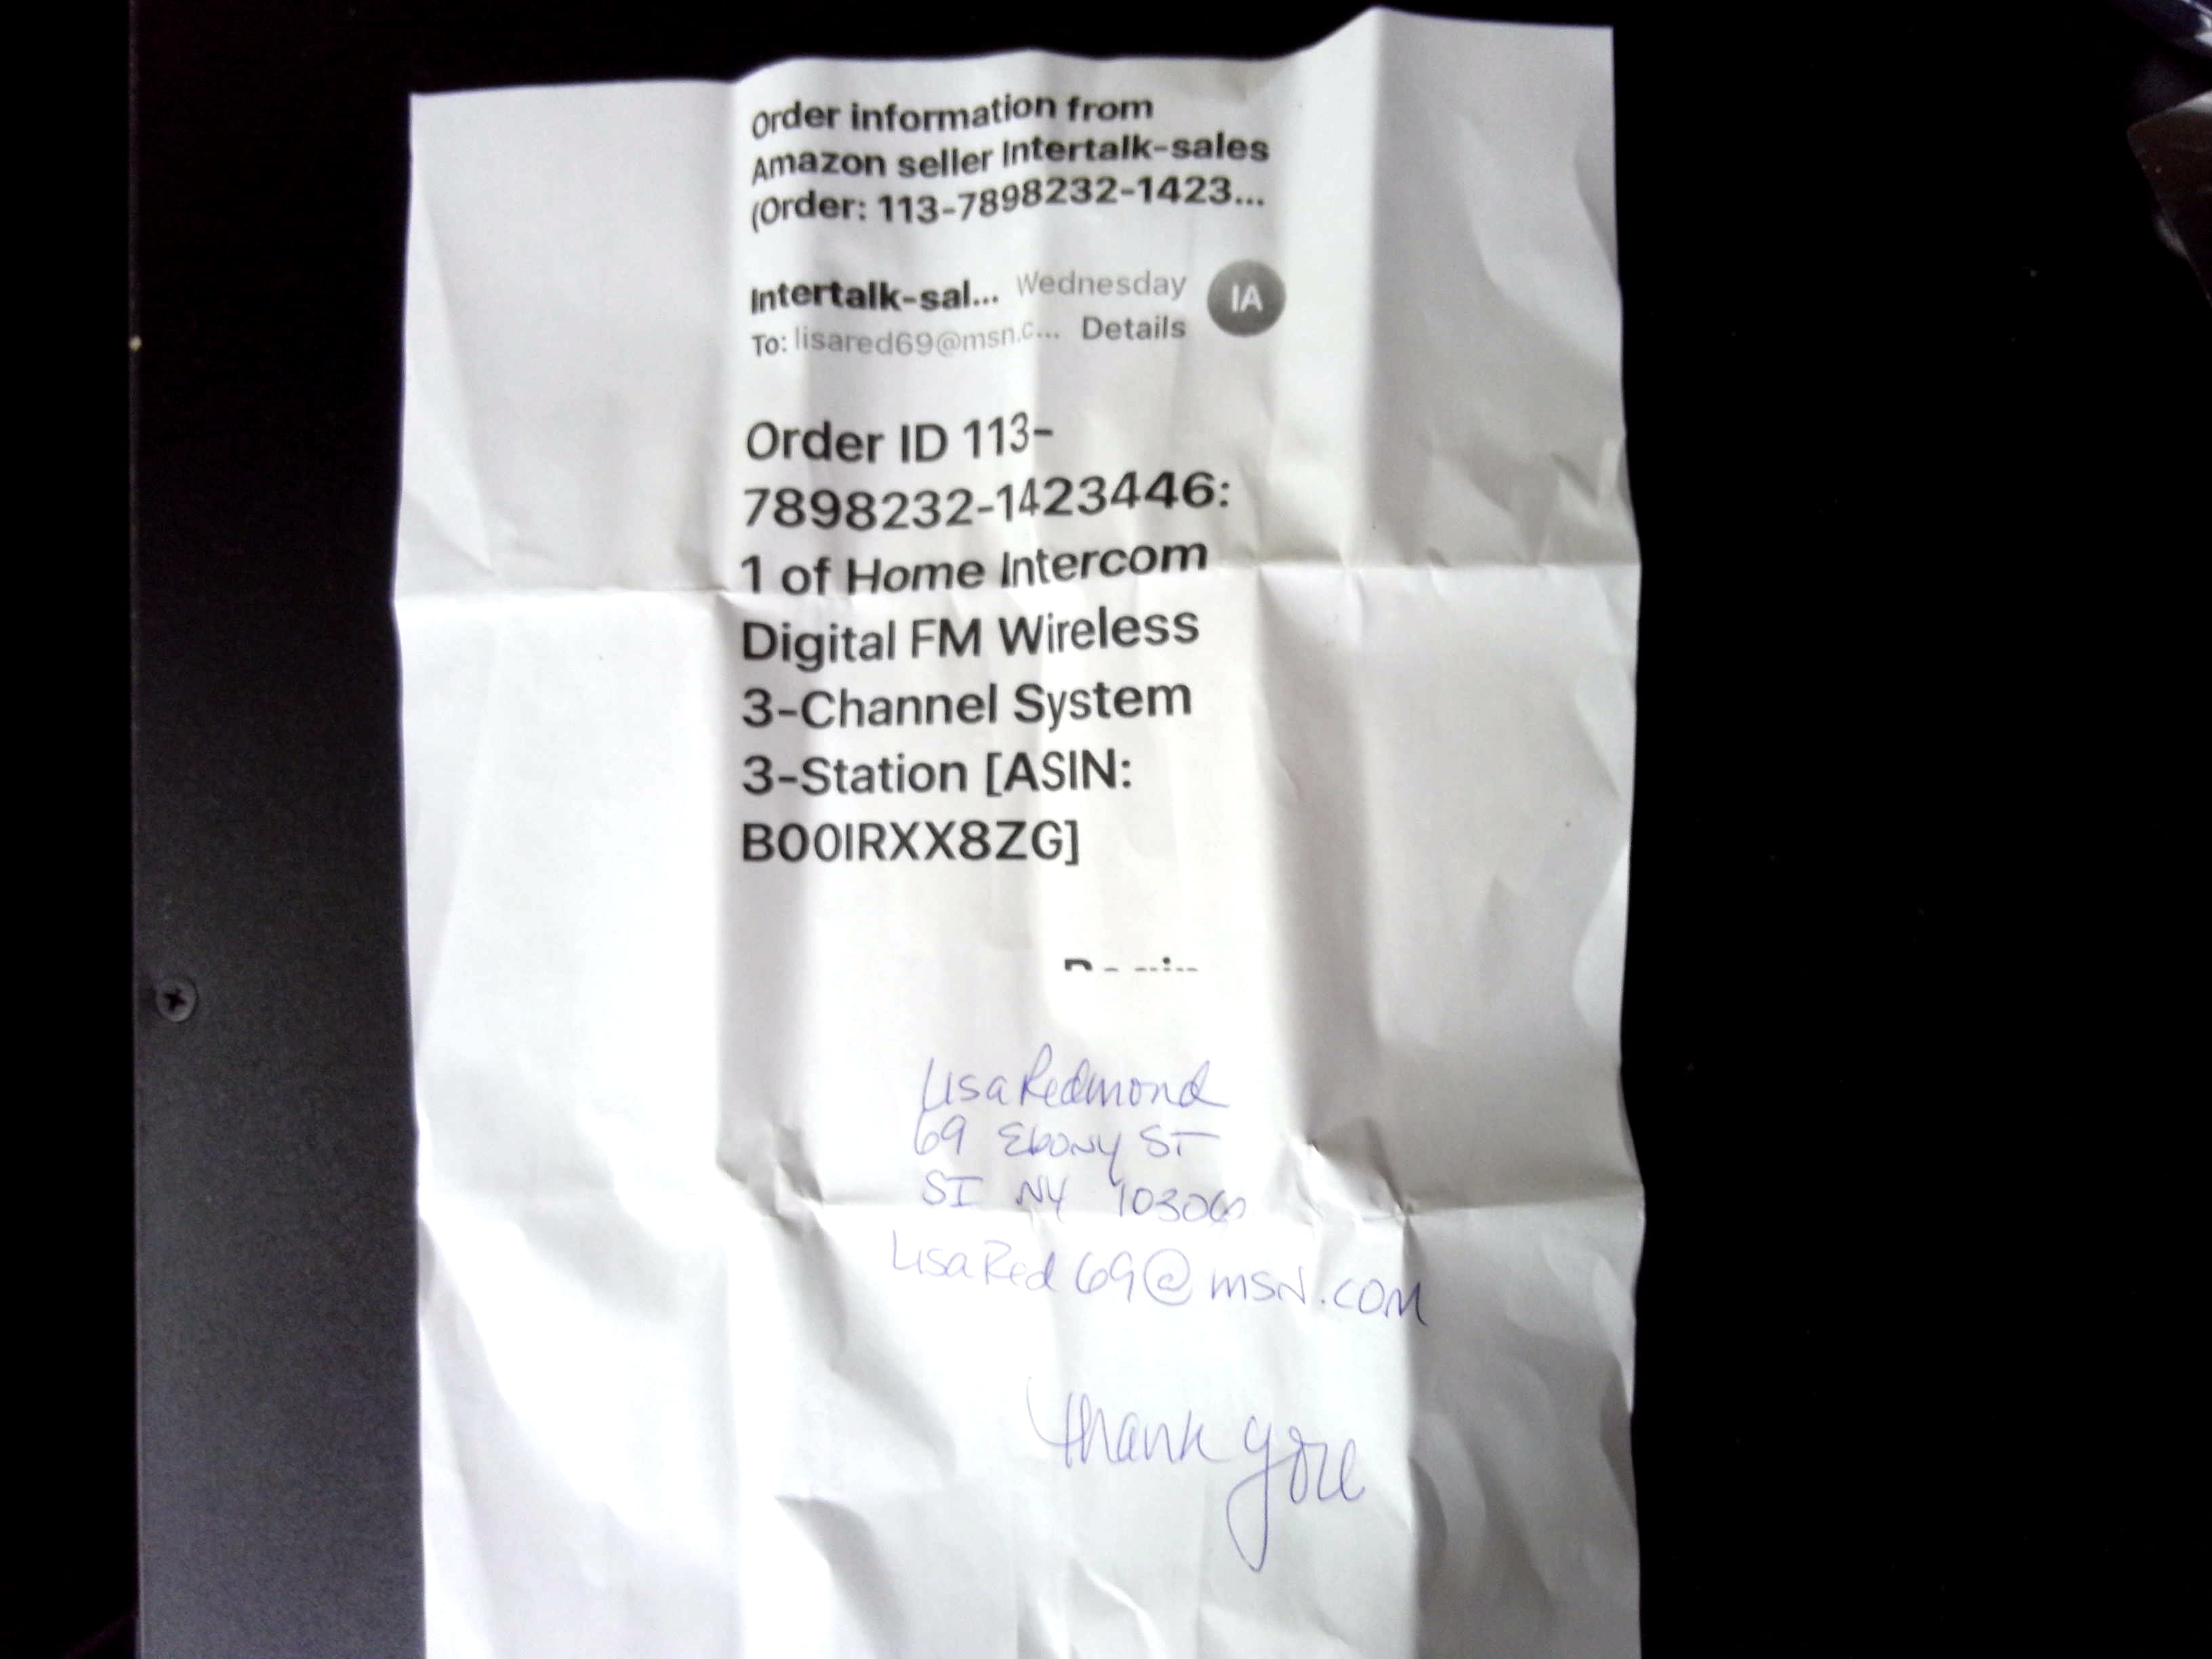 Order information from
Amazon seller Intertalk-sales
(Order: 113-7898232-1423...
Intertalk-sal... Wednesday IA
To: lisared69@msn.c... Details
Order ID 113-
7898232-1423446:
1 of Home Intercom
Digital FM Wireless
3-Channel System
3-Station [ASIN:
B00IRXX8ZG]
Lisa Redmond
69 Ebony ST
SI NY
LisaRed69@msn.com
Thank you